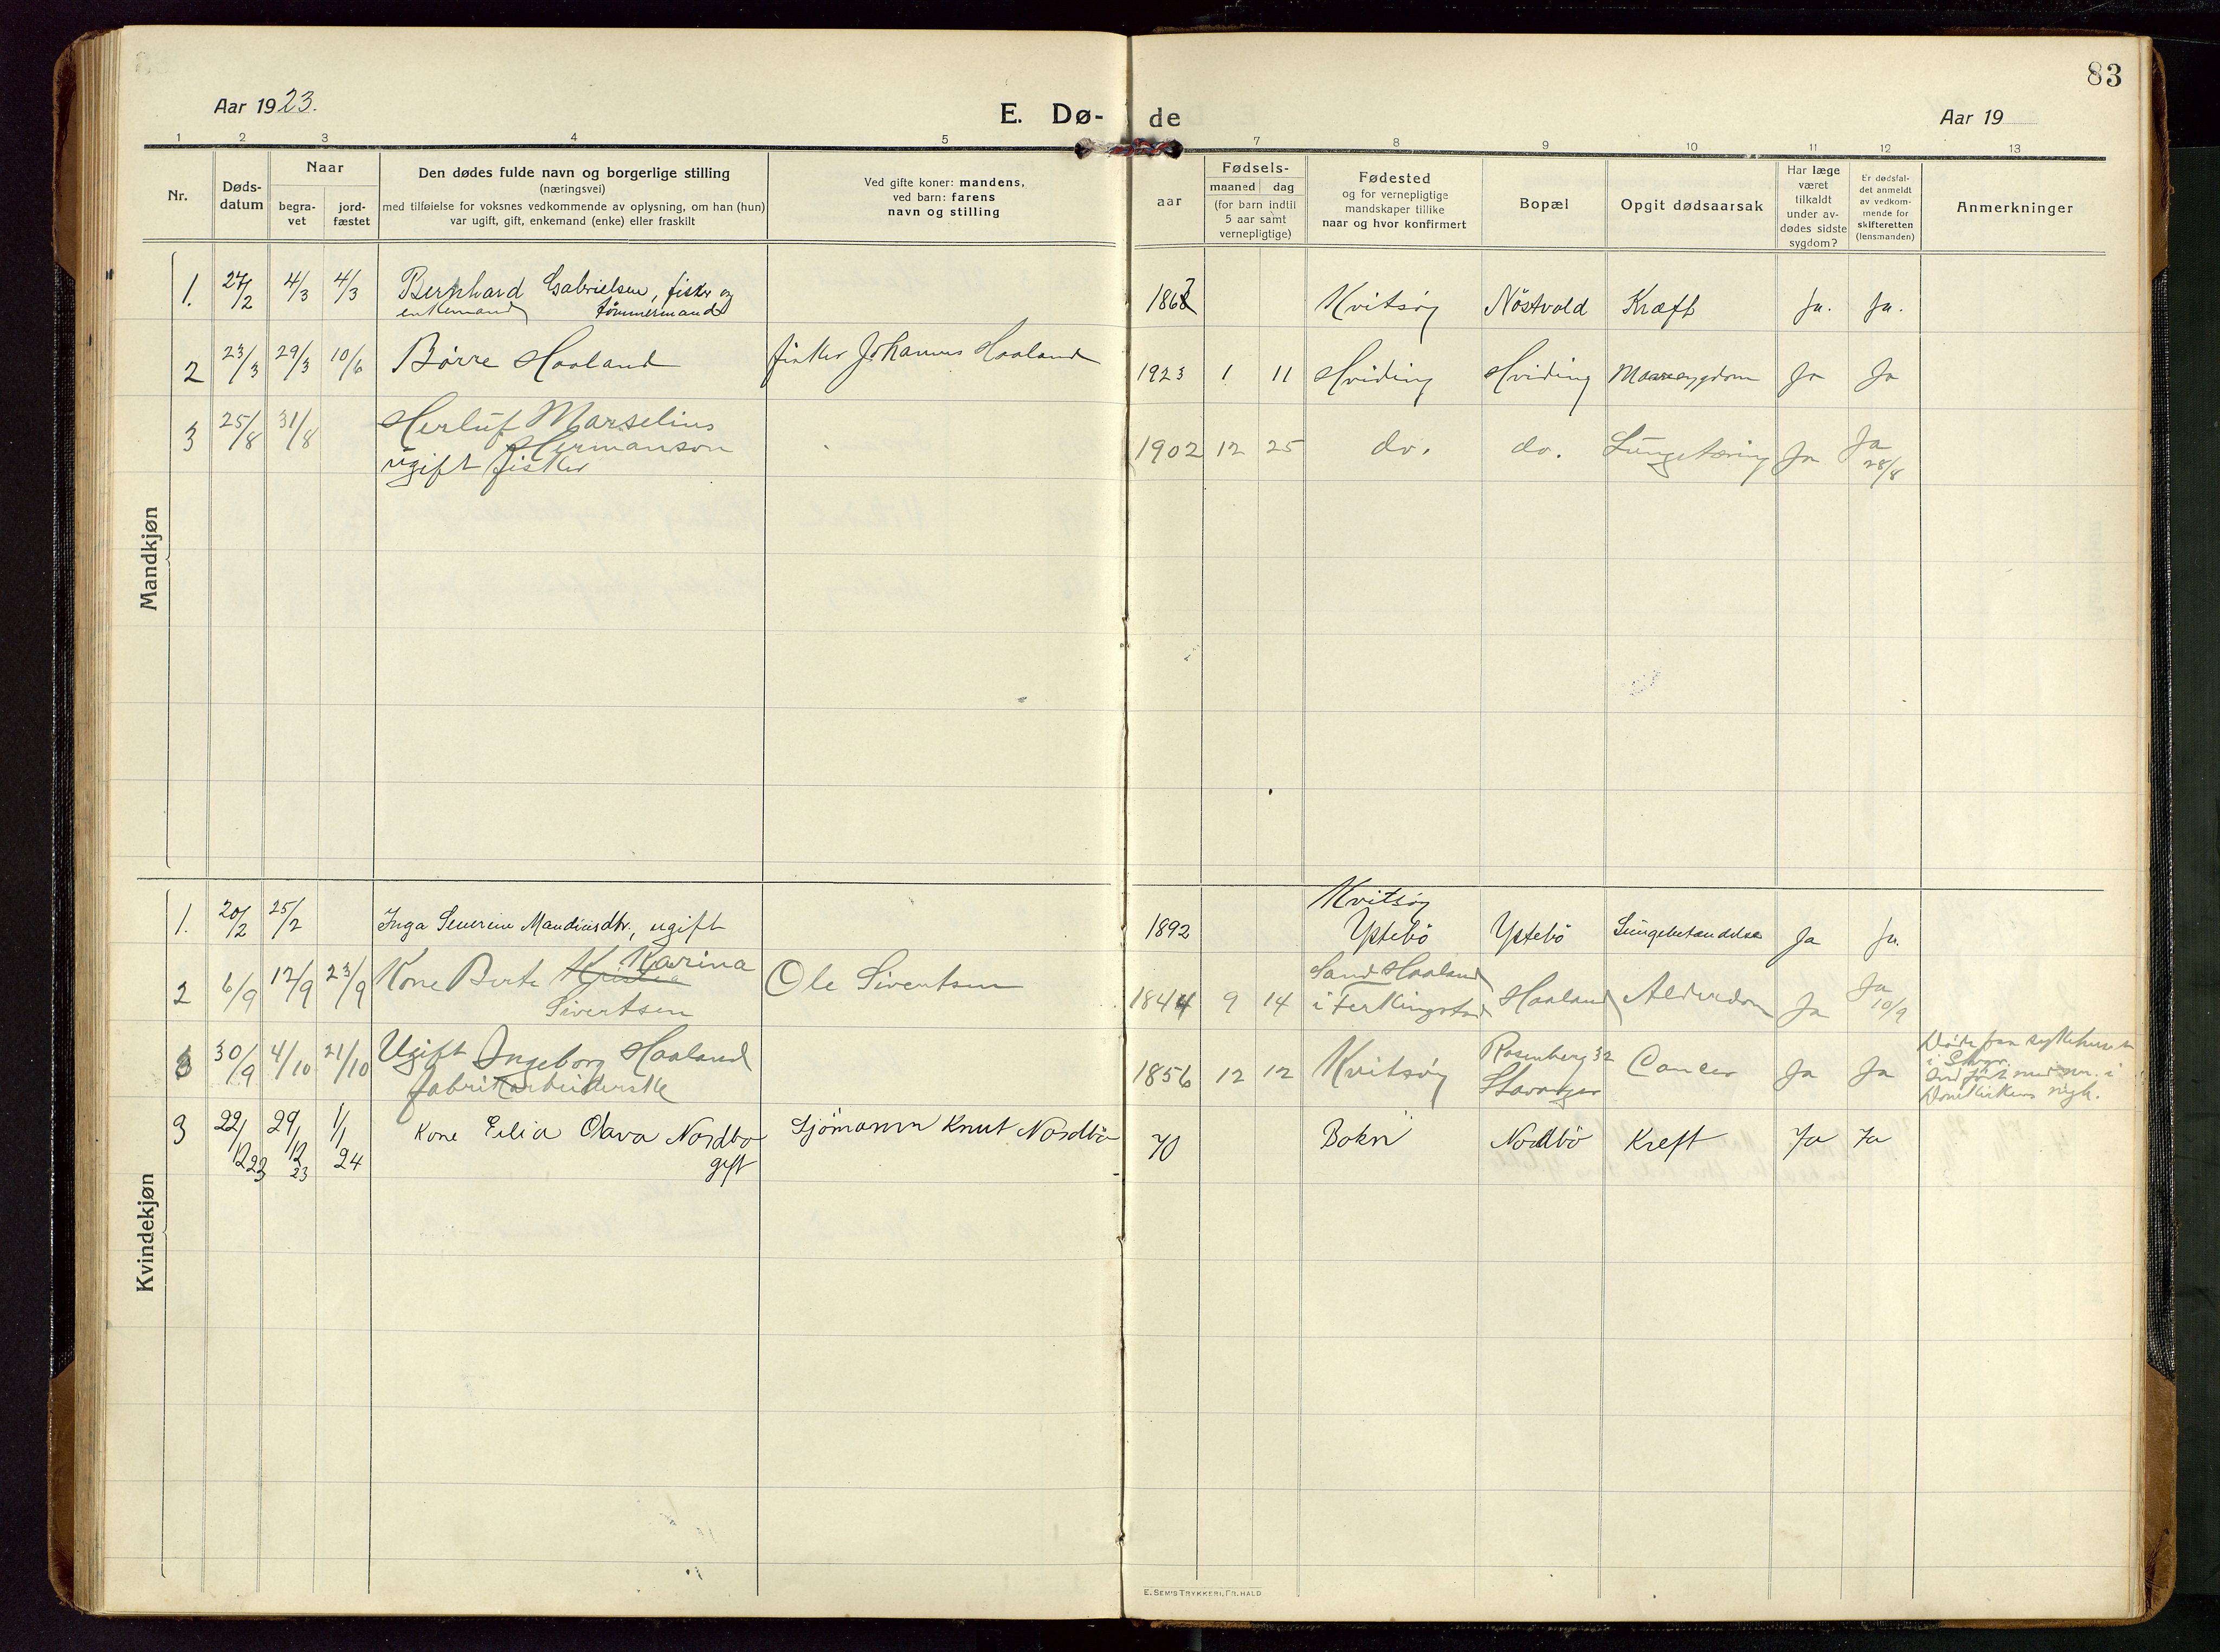 83
Aar 1923.
E. Dø- de
Aar 19
1 2 3 4 5 7 8 9 10 11 12 13
Nr.
Døds-
datum
Naar
begra-
vet
jord-
fæstet
Den dødes fulde navn og borgerlige stilling
(næringsvei)
med tilføielse for voksnes vedkommende av oplysning, om han (hun)
var ugift, gift, enkemand (enke) eller fraskilt
Ved gifte koner: mandens,
ved barn: farens
navn og stilling
Fødsels-
aar
maaned dag
(for barn indtil
5 aar samt
vernepligtige)
Fødested
og for vernepligtige
mandskaper tillike
naar og hvor konfirmert
Bopæl
Opgit dødsaarsak
Har læge
været
tilkaldt
under av-
dødes sidste
sygdom?
Er dødsfal-
det anmeldt
av vedkom-
mende for
skifteretten
(lensmanden)
Anmerkninger
Mandkjøn
1. 27/2 4/3 4/3 Bernhard Gabrielsen, fisker og
enkemand tømmermand
Kvitsøy Nöstvold Kræft Ja. Ja.
2 23/3 29/3 10/6 Börre Haaland fisker Johannes Haaland 1923 1 11 Hviding Hviding Ja Ja
3 25/8 31/8 Herluf Marselius
Hermanson
ugift fisker
1902 12 25 do. do. Lungetæring Ja Ja
28/8
Kvindekjøn
1. 20/2 25/2 Inga Severine Mandiusdtr., ugift 1892 Kvitsøy
Ystebö Ystebö Lungebetændelse Ja Ja.
2 6/9 12/9 23/9 Kone Berte Kristine Karina
Sivertsen
Ole Sivertsen 1844 9 14 Sand Haaland
i Ferkingstad Haaland Alderdom Ja Ja
10/9
3 30/9 4/10 21/10 Ugift Ingeborg Haaland
fabrikarbeiderske
1856 12 12 Kvitsøy Rosenberg 32
Stavanger Cancer Ja Ja
3 22/12 23 29/12 23 1/1 24 Kone Eilia Olava Nordbø
gift
Sjømann Knut Nordbø 70 Bokn Nordbö Kreft Ja Ja
E. SEM'S TRYKKERI, FR. HALD